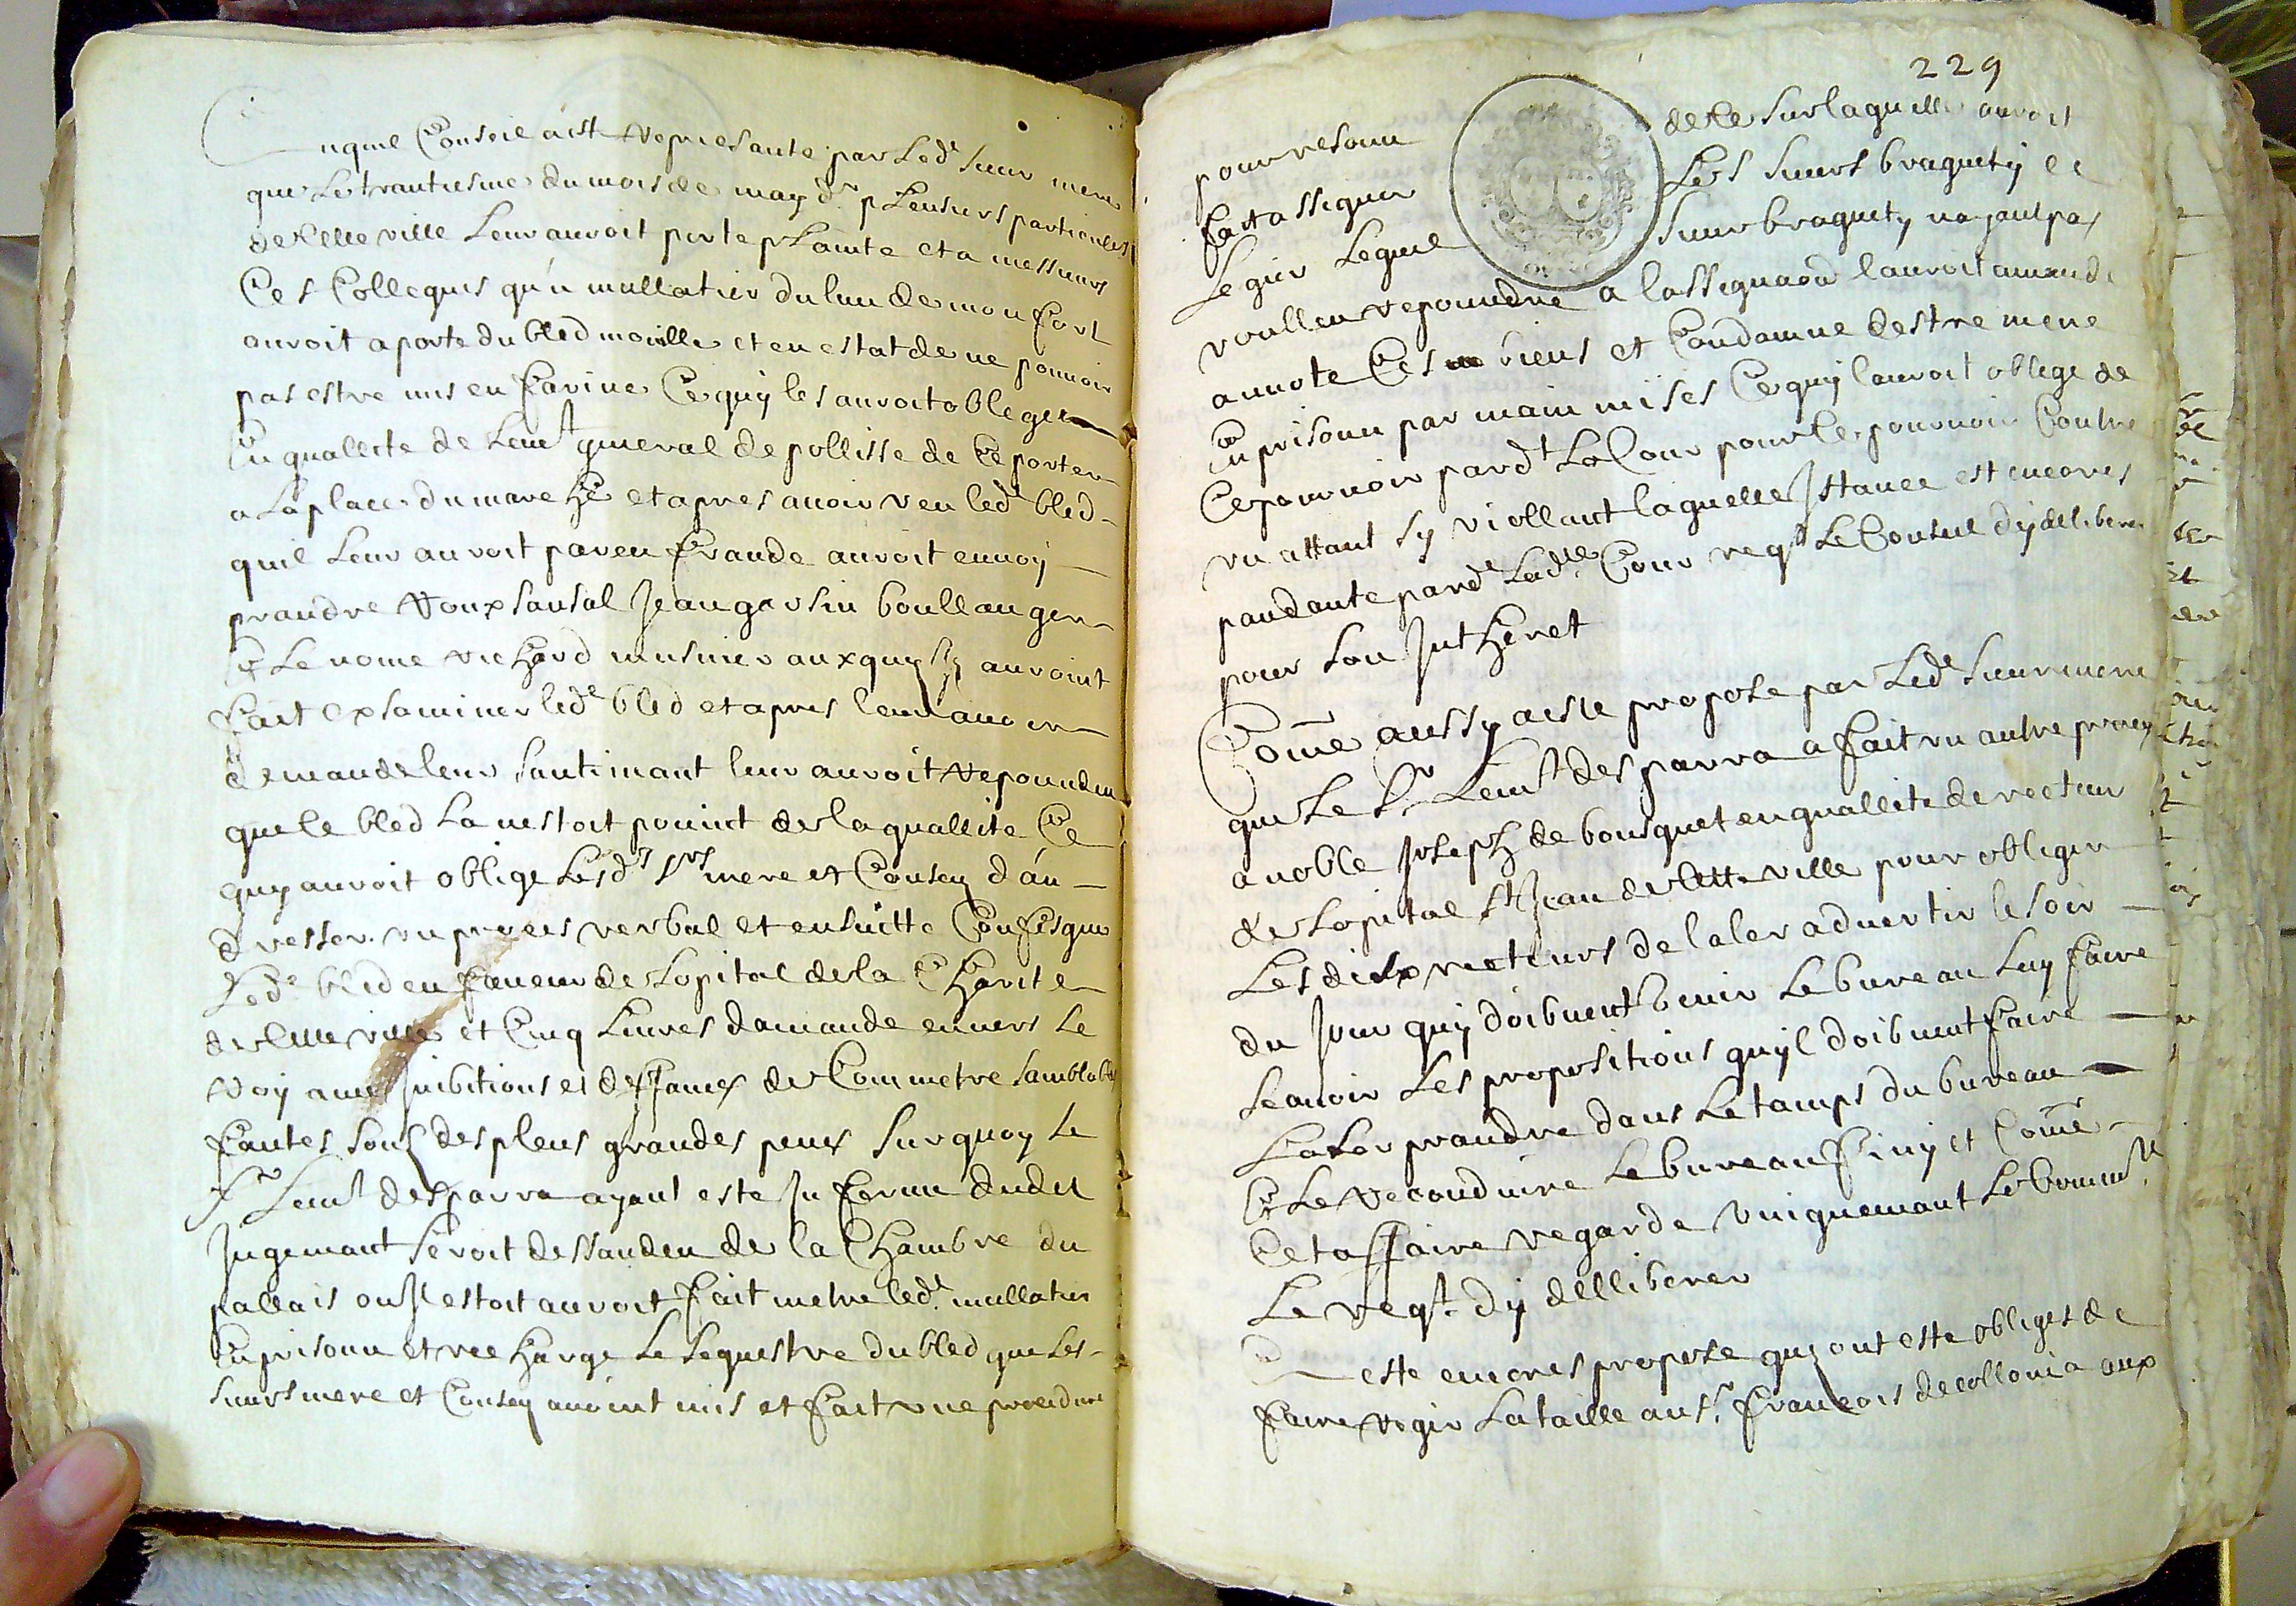 uquel Conseil a ist represante par Led.e sieur mere
que Le trantiesme du mois de may d.r pleusurs particulers
de cette ville Leur auroit porte plainte et a messieurs
Ces Collegues qu'u mullatier du lieu de monfort
auroit aporte du bled moulle et en estat de ne pouvoir
pas estre mis en farine Ce quy les auroit obleger
En quallete de Lieut general de pollisse de Ce porter
a La place du marche et apres avoir veu led.t bled
quil Leur auroit pareu fraude auroit envoy
prandre Roux sansal Jean garsin boullanger
Et Le nome richard musnier auxquy auroint
fait exsaminer led.e bled et apres leur avoir
demande leur santimant leur auroit repoundeu
que le bled La nestoit point de la quallite Ce
quy auroit oblige Lesd.s srs mere et Consey d'au
dresser un proces verbal et ensuitte Confisque
Led.e bled en faveur de Lopital de la Charite
de cette ville et Cinq Livres damande envers Le
Roy avec inibitions et deffances de Commetre samblables
fautes souz des pleus grandes penes sur quoy Le
Sr Lieut desparra ayant este Informe dudet
Jugemant seroit dessandeu de la Chambre du
pallais ou Jl estoit auroit fait metre led.t mullatier
En prisoun et recharge Le sequestre du bled que Les
sieurs mere et Consey avoint mis et fait une procedure
229
pour resoun de Ce sur laquelle auroit
fait assigner Les sieurs braguety et
Legier Lequel sieur braguety nayant pas
voulleu repoundre a lassignaon lauroit amande
annote Ces biens et Condamne destre mene
En prisoun par main mises Ce quy lauroit oblige de
Ce pourvoir pard.t La Cour pour le pourvoir Contre
un attant sy viollant laquelle Jstance est encores
pandante pard.t Lad.e Cour reqt Le Conseil dy deliberer
pour son Jntheret
Come aussy a este propose par Led.e sieur mere
que Le Sr Lieut desparra a fait un autre proces
a noble Joseph de bousquet en quallite de recteur
de Lopital St Jean de cette ville pour obliger
Les dix recteurs de laler advertir le soir
du Jour quy doibvent tenir Le bureau Luy faire
scavoir Les propositions quyl doibvent faire
Laler prandre dans Le tamps du bureau
Et Le reconduire Le bureau finy et Come
Cet affaire regarde uniquemant La Commte
Le reqt dy delliberer
este encores propose quy ont este obliges de
faire regir La taille au sr francois de collonia aux